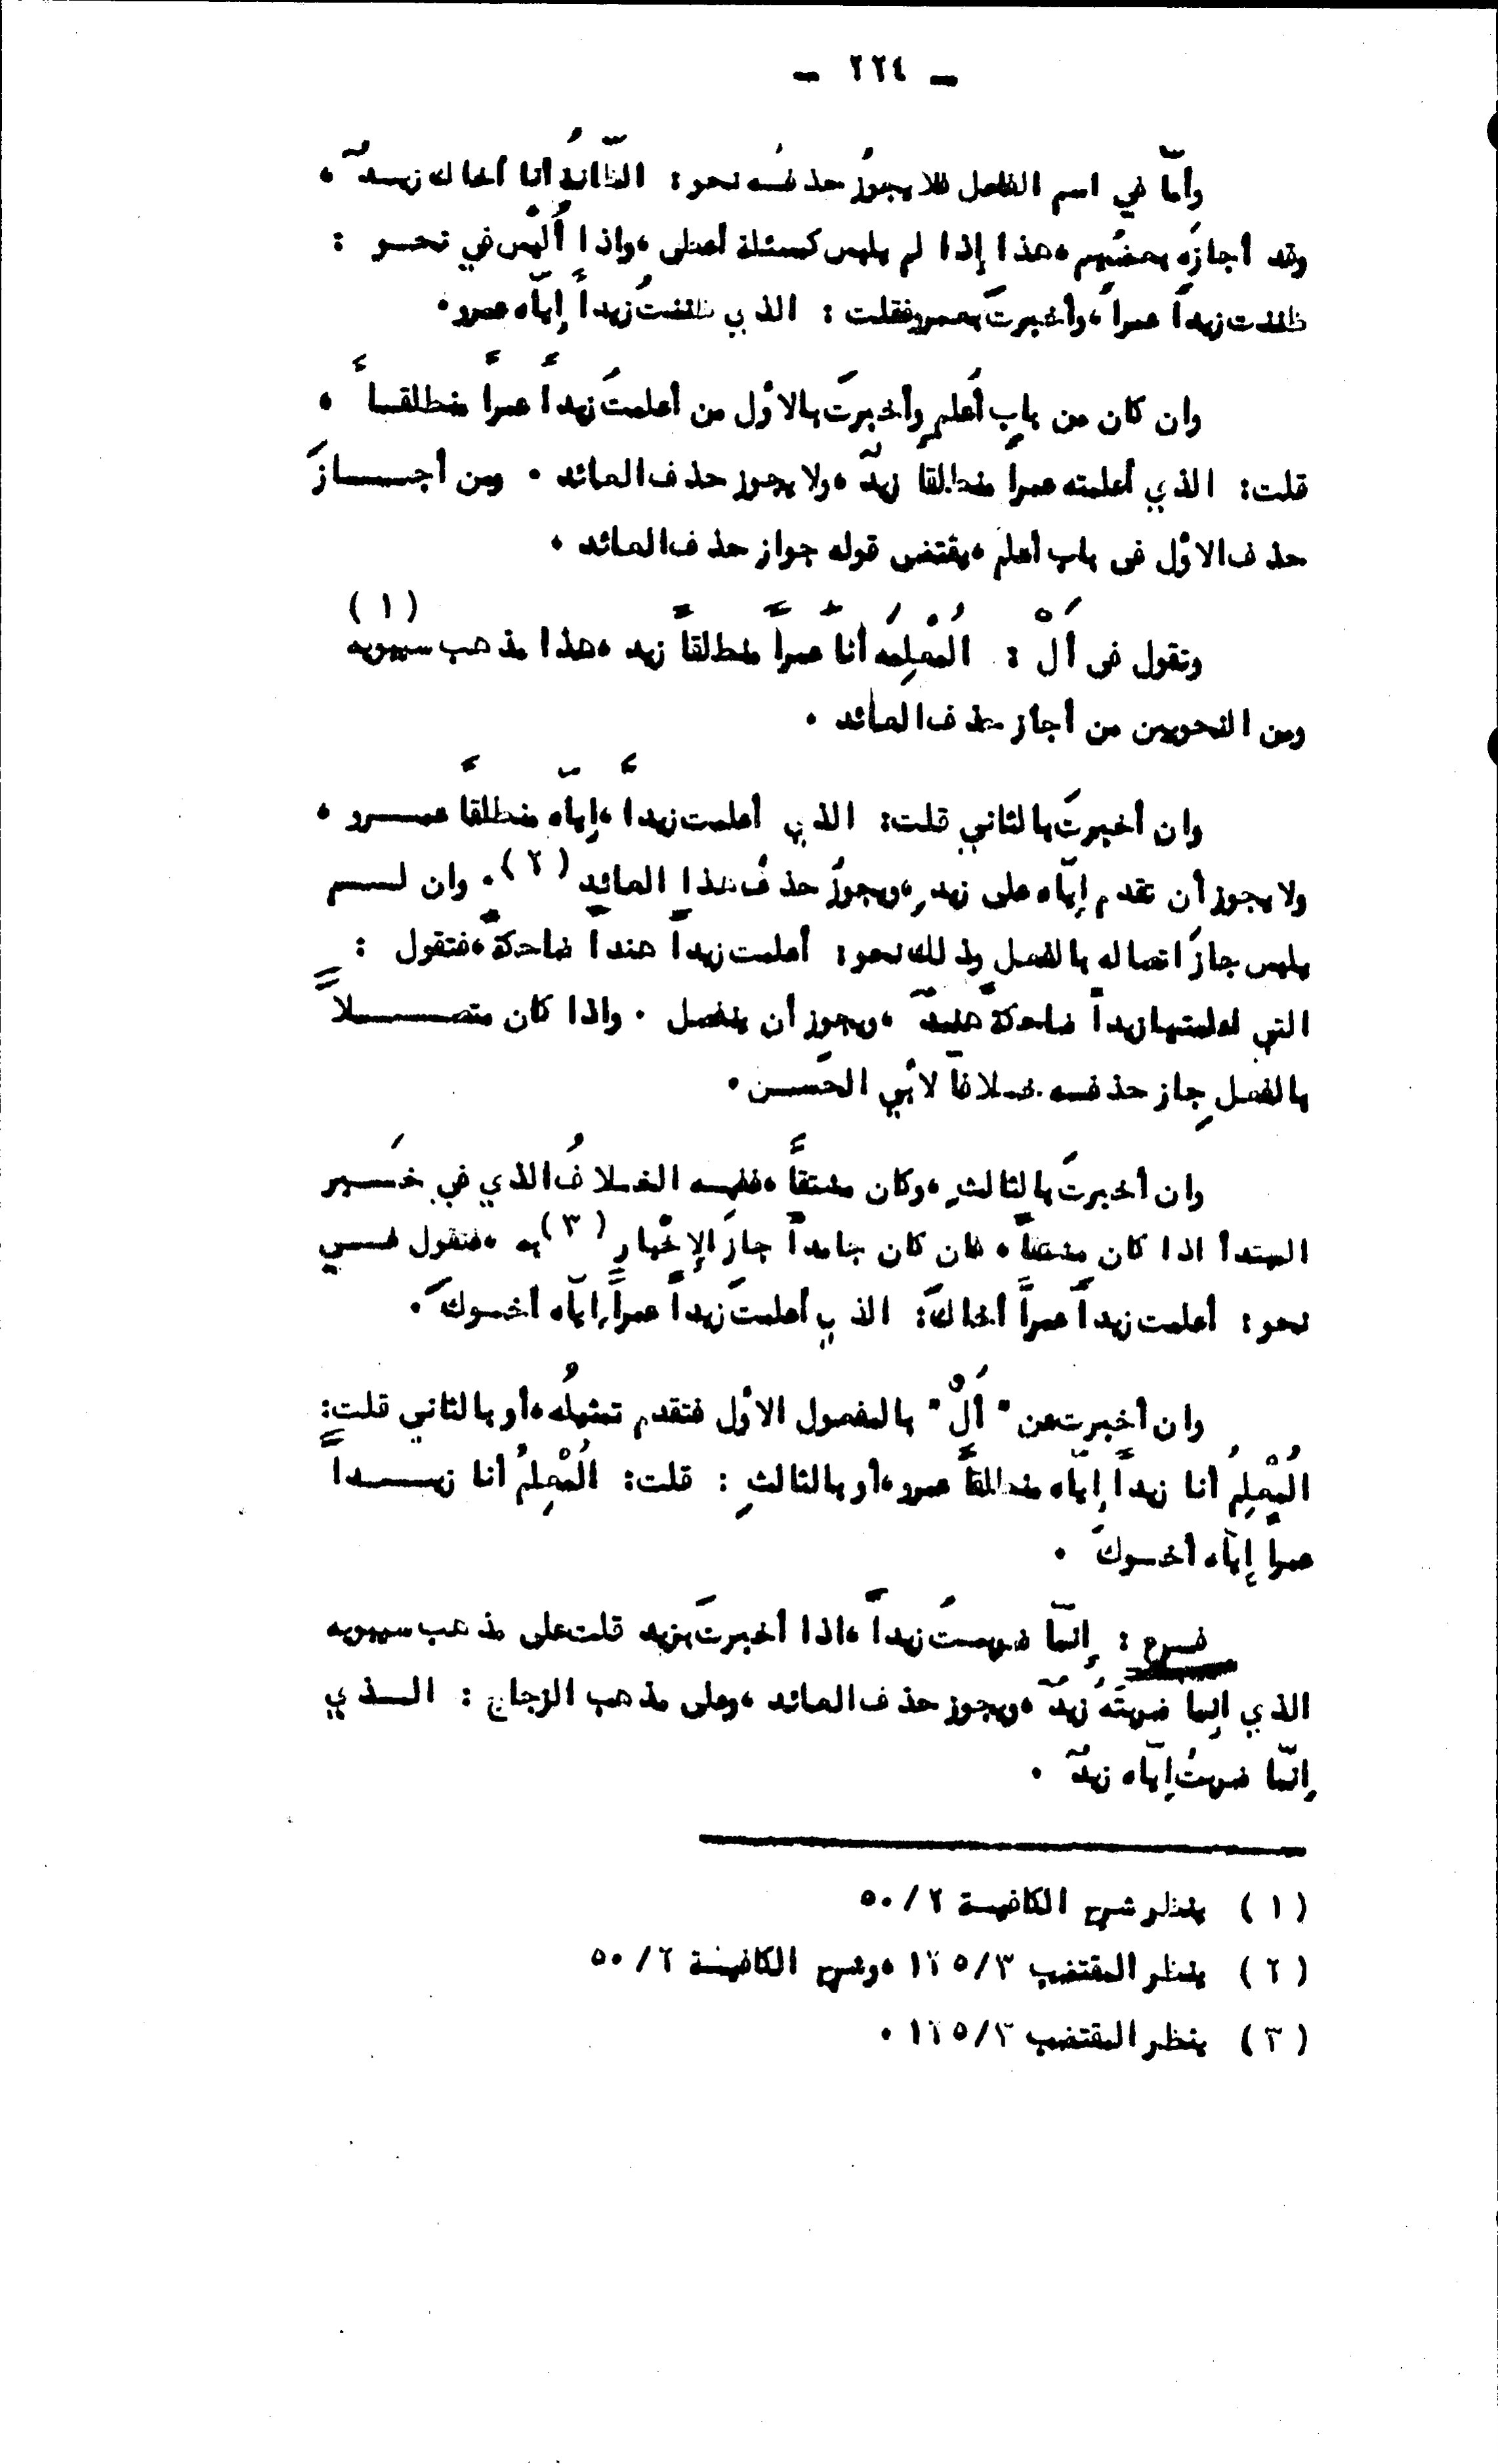 — ٢٢٤ —
وأمّا في اسم الفاعل فلا يجوزُ حذفُه نحو: الظّانُّهُ أنا أخاك زيدٌ ،
وقد أجازَه بعضُهم ، هذا إذا لم يلبس كمسئلة أعطى ، واذا أُلْبِس في نحو :
ظننت زيداً عمراً ، وأخبرتَ بعمروٍ فقلت : الذي ظننتُ زيداً إيّاه عمرو .
وان كان من بابِ أَعلم وأخبرتَ بالأوّل من أعلمتُ زيداً عمراً منطلقاً ،
قلت: الذي أعلمته عمراً منطلقا زيدٌ ، ولا يجوز حذف العائد . ومن أجازَ
حذف الأوّل في باب أعلم ، يقتضي قوله جواز حذف العائد .
وتقول في أَلْ : المُعْلِمُه أنا عمراً منطلقاً زيد ، هذا مذهب سيبويه (١)
ومن النحويين من أجاز حذف العائد .
وان أخبرتَ بالثاني قلت: الذي أعلمت زيداً ، إيّاه منطلقاً عمرو ،
ولا يجوز أن تقدم إيّاه على زيدٍ ، ويجوزُ حذفُ هذا العائدِ (٢) . وان لم
يلبس جازَ اتصاله بالفعل وذلك نحو: أعلمت زيداً هنداً ضاحكةً ، فتقول :
التي أعلمتها زيداً ضاحكةً هندٌ ، ويجوز أن ينفصل . واذا كان متصلاً
بالفعلِ جاز حذفه خلافا لأبي الحَسن .
وان أخبرتَ بالثالثِ ، وكان مشتقاً ، ففيه الخلافُ الذي في خَبر
المبتدأ اذا كان مشتقاً ، فان كان جامداً جازَ الإِخْبارِ (٣) به ، فتقول في
نحو: أعلمت زيداً عمراً أخاكَ: الذي أعلمتَ زيداً عمراً إيّاه أخوكَ .
وان أخبرت عن " أَلْ " بالمفعول الأوّل فتقدم تمثيلُه ، أو بالثاني قلت:
المُعْلِمُ أنا زيداً إيّاه منطلقاً عمرو ، أو بالثالثِ : قلت: المُعْلِمُ أنا زيداً
عمرا إيّاه أخوكَ .
فرع : إنّما ضربتُ زيداً ، اذا أخبرتَ بزيد قلت على مذهب سيبويه
الذي إنما ضربتَهُ زيدٌ ، ويجوز حذف العائد ، وعلى مذهب الزجاج : الذي
إنّما ضربتُ إيّاه زيدٌ .
(١) ينظر شرح الكافية ٢/٥٠
(٢) ينظر المقتضب ٣/١٢٥ ، وشرح الكافية ٢/٥٠
(٣) ينظر المقتضب ٣/١٢٥ .